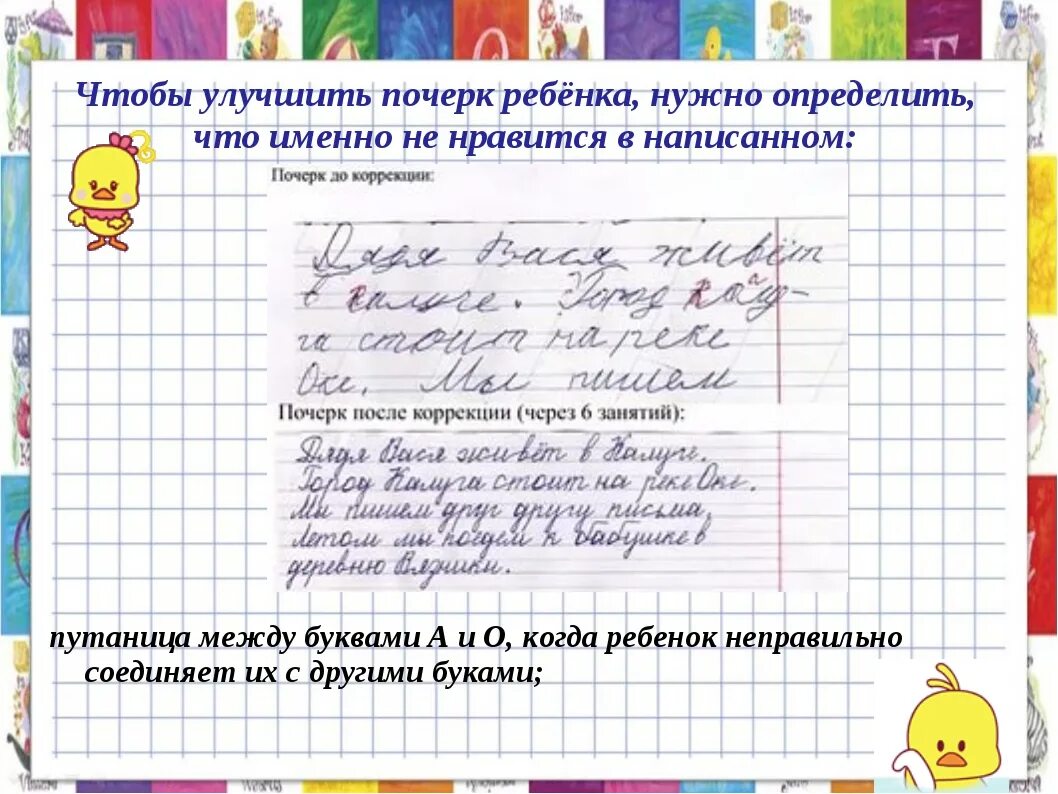 Чтобы улучшить почерк ребёнка, нужно определить,
что именно не нравится в написанном:
Почерк до коррекции:
Дядя Вася живёт
в калуге. Город Ка
га стоит на реке
Оке. Мы пишем
Почерк после коррекции (через 6 занятий):
Дядя Вася живёт в Калуге.
Город Калуга стоит на реке Оке.
Мы пишем друг другу письма.
Летом мы поедем к бабушке в
деревню Вязники.
путаница между буквами А и О, когда ребенок неправильно
соединяет их с другими буками;